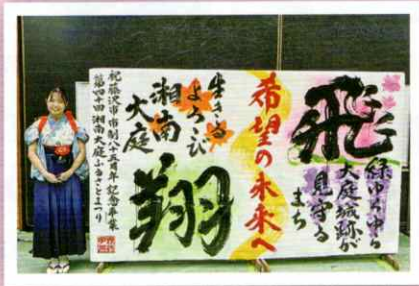 飛
緑ゆたか
大庭城跡が
見守る
まち
希望の未来へ
生きる
よろこび
湘南
大庭
翔
祝藤沢市市制八十五周年記念事業
第四十回湘南大庭ふるさとまつり